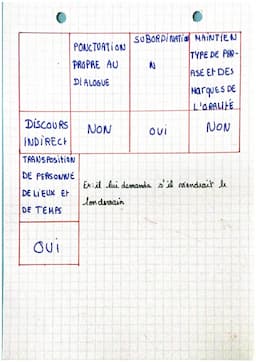 PONCTUATION
PROPRE AU
DIALOGUE
SUBORDINATIO
N
MAINTIEN
TYPE DE PHR-
ASE ET DES
MARQUES DE
L'ORALITÉ
DISCOURS
INDIRECT
NON
OUI
NON
TRANSPOSITION
DE PERSONNE
DE LIEUX ET
DE TEMPS
OUI
Ex: il lui demanda s'il viendrait le
lendemain